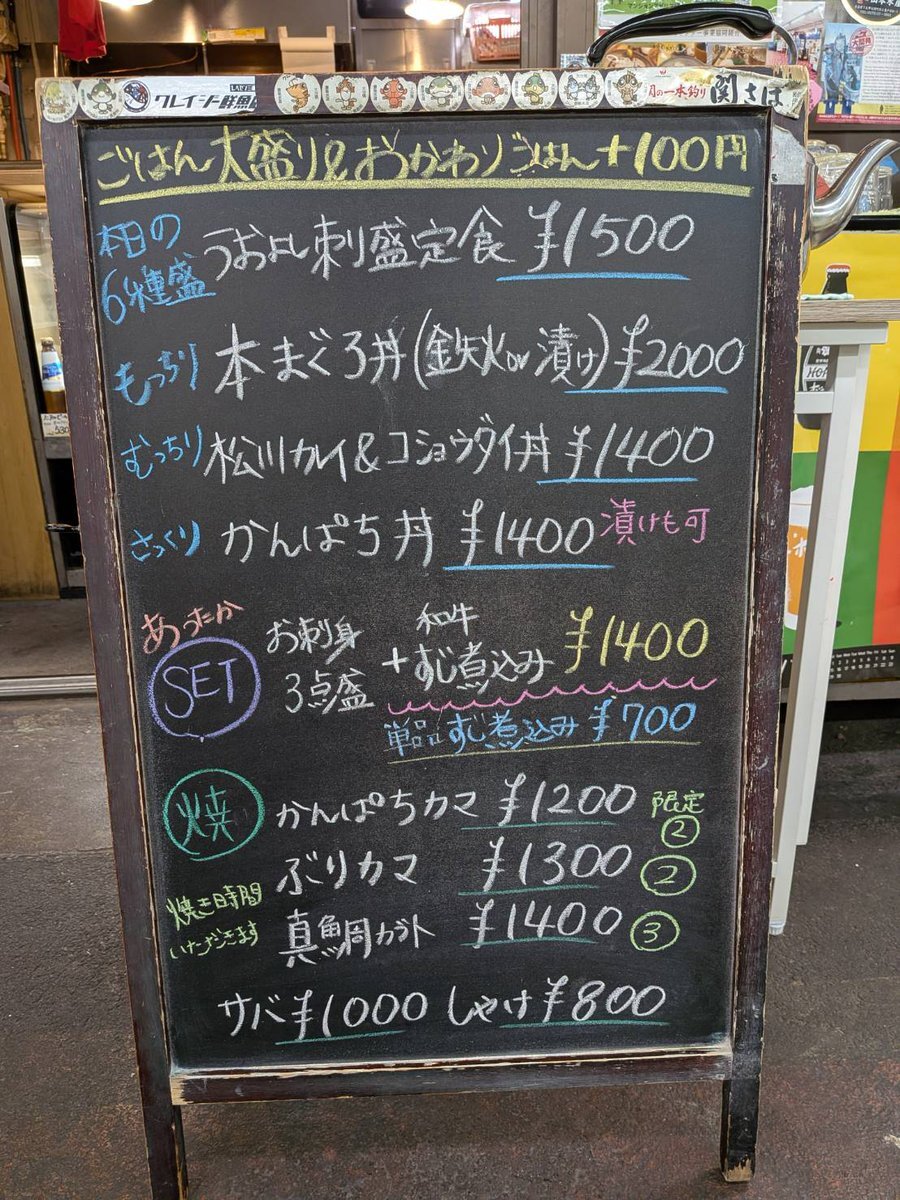 クレイジー鮮魚
月の一本釣り 関さば
ごはん大盛り&おかわりごはん+100円
本日の
6種盛
うおよし刺盛定食 ¥1500
もっちり 本まぐろ丼(鉄火or漬け) ¥2000
むっちり 松川カレイ&コショウダイ丼 ¥1400
さっくり かんぱち丼 ¥1400 漬けも可
あったか
SET
お刺身
3点盛
和牛
+すじ煮込み ¥1400
単品 すじ煮込み ¥700
焼 かんぱちカマ ¥1200 限定
②
ぶりカマ ¥1300 ②
焼き時間
いただきます
真鯛カブト ¥1400 ③
サバ ¥1000 しゃけ ¥800